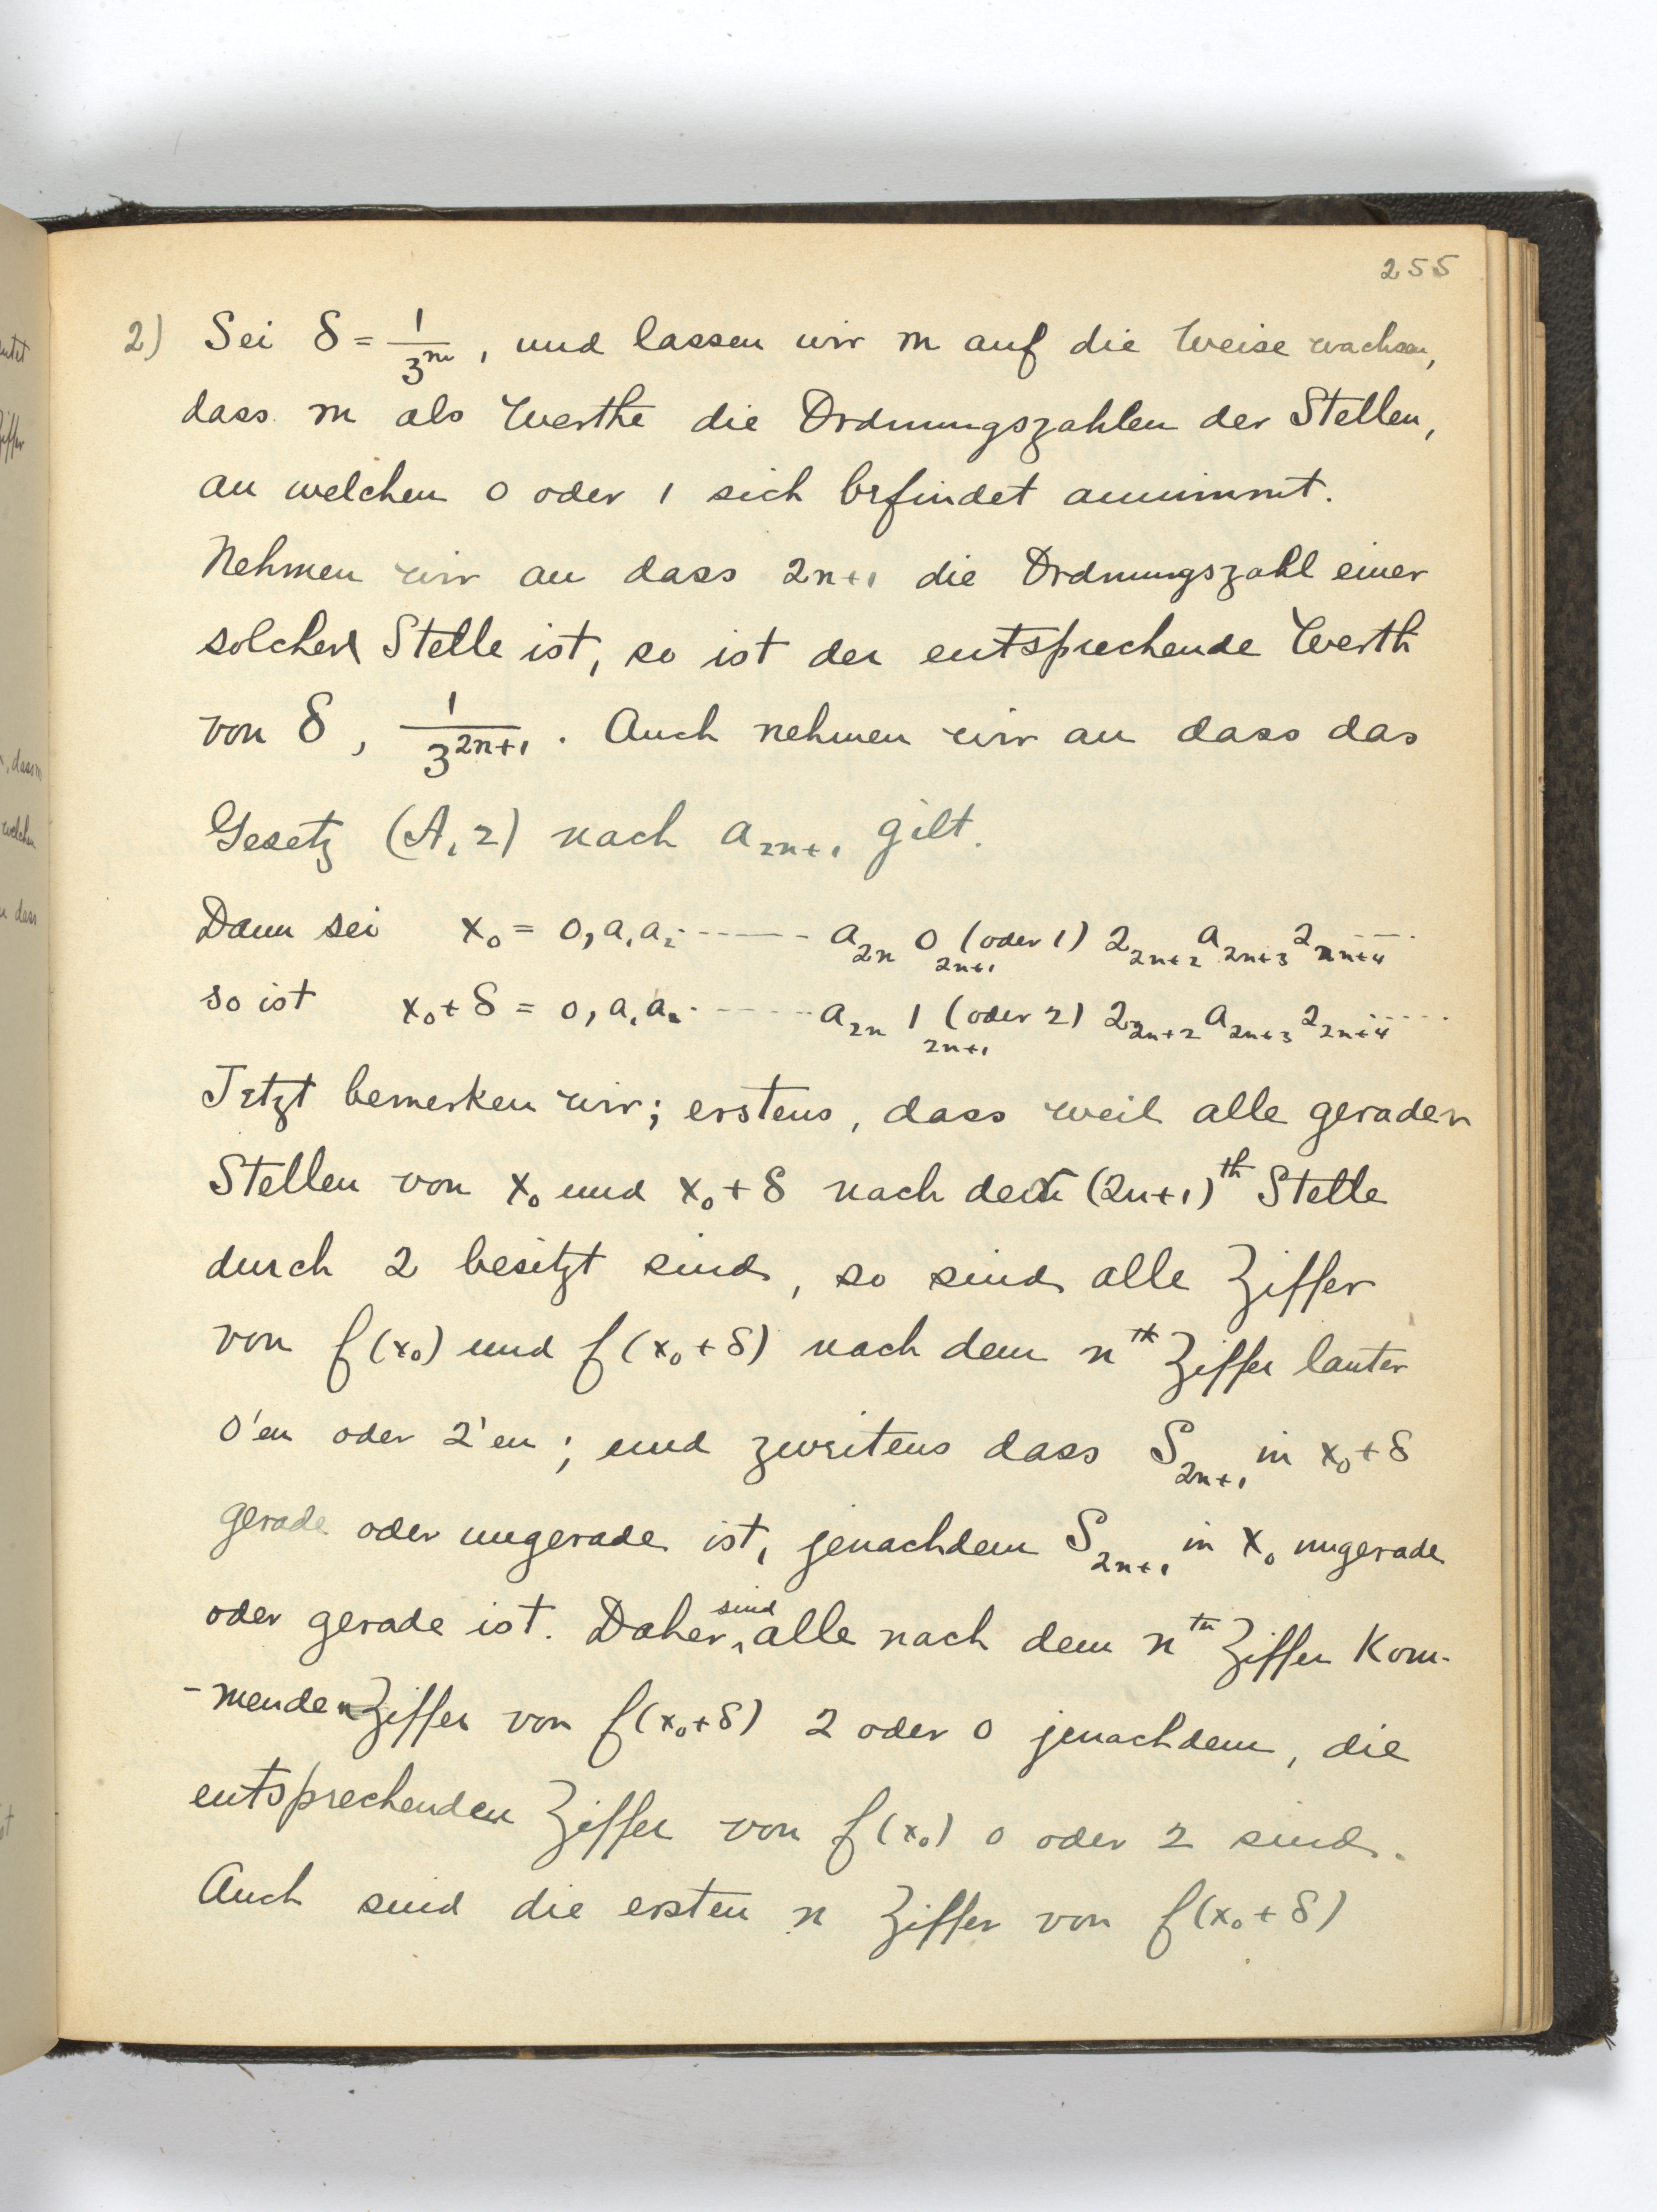 255
2) Sei δ = 1/3^m, und lassen wir m auf die Weise wachsen,
dass m als Werthe die Ordnungszahlen der Stellen,
an welchen 0 oder 1 sich befindet annimmt.
Nehmen wir an dass 2n+1 die Ordnungszahl einer
solchen Stelle ist, so ist der entsprechende Werth
von δ, 1/3^{2n+1}. Auch nehmen wir an dass das
Gesetz (A, 2) nach a_{2n+1} gilt.
Dann sei x₀ = 0, a₁ a₂ ------ a_{2n} 0_{2n+1} (oder 1) 2_{2n+2} a_{2n+3} 2_{2n+4} ....
so ist x₀+δ = 0, a₁ a₂ ------ a_{2n} 1_{2n+1} (oder 2) 2_{2n+2} a_{2n+3} 2_{2n+4} ....
Jetzt bemerken wir; erstens, dass weil alle geraden
Stellen von x₀ und x₀+δ nach der (2n+1)^{th} Stelle
durch 2 besitzt sind, so sind alle Ziffer
von f(x₀) und f(x₀+δ) nach dem n^{th} Ziffer lauter
0'en oder 2'en; und zweitens dass S_{2n+1} in x₀+δ
gerade oder ungerade ist, jenachdem S_{2n+1} in x₀ ungerade
oder gerade ist. Daher sind alle nach dem n^{th} Ziffer Kom-
-menden Ziffer von f(x₀+δ) 2 oder 0 jenachdem, die
entsprechenden Ziffer von f(x₀) 0 oder 2 sind.
Auch sind die ersten n Ziffer von f(x₀+δ)